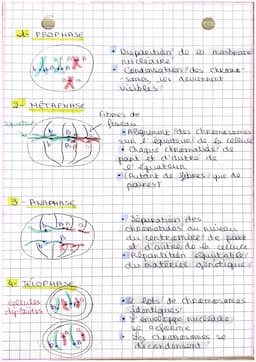 1- PROPHASE
• Disparition de la membrane
nucléaire
• Condensation des chromo
-somes, ils deviennent
visibles
2- MÉTAPHASE
Fibres de
fuseau
équateur
• Alignement des chromosomes
sur l'équateur de la cellule
• Chaque chromatide de
part et d'autre de
l'équateur
(Autant de fibres que de
paires)
3- ANAPHASE
• Séparation des
chromatides au niveau
du centromère de part
et d'autre de la cellule
• Répartition équitable
du matériel génétique
4- TÉLOPHASE
cellules
diploïdes
lots de chromosomes
identiques
• L'enveloppe nucléaire
se reforme
• Les chromosomes se
décondensent